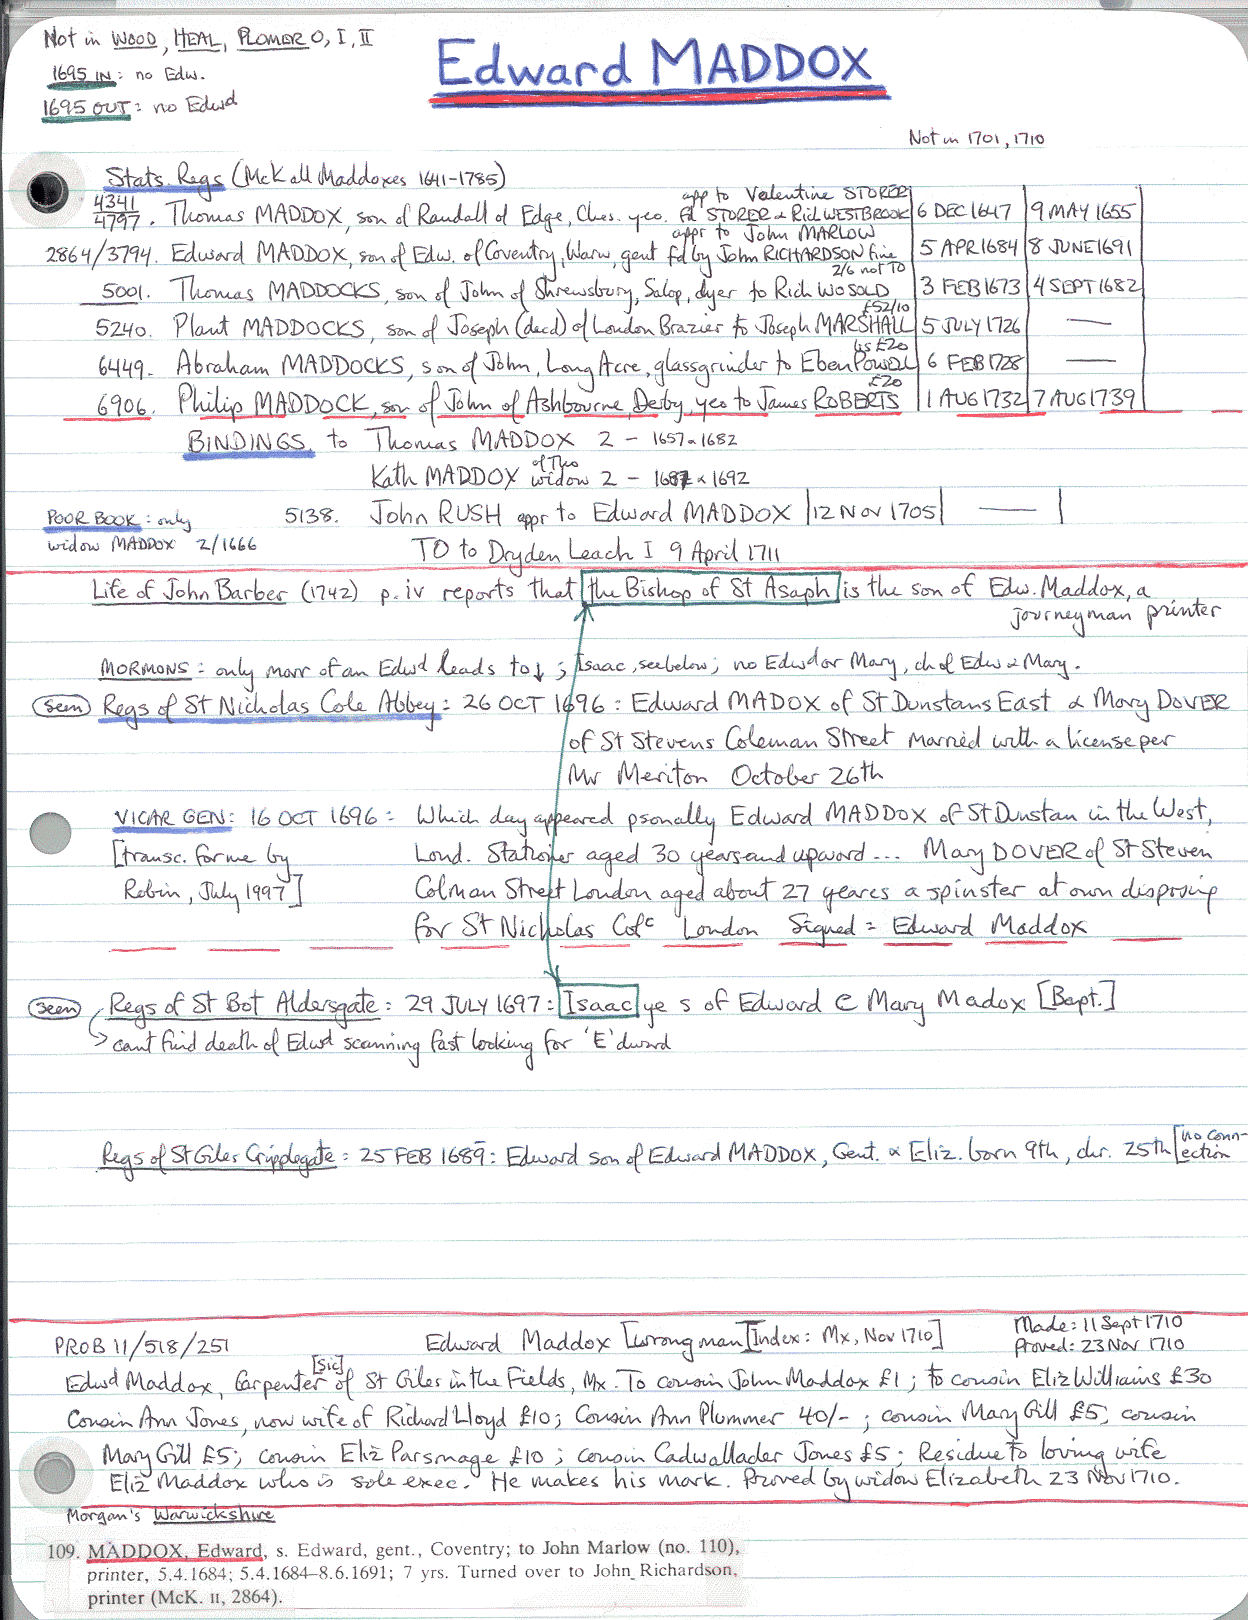 Not in WOOD, HEAL, PLOMER O, I, II
Edward MADDOX
1695 IN: no Edw.
1695 OUT: no Edwd
Not in 1701, 1710
Stats. Regs (McK all Maddoxes 1641-1785)
4341
4797. Thomas MADDOX, son of Randall of Edge, Ches. yeo. app to Valentine STORER fd STORER & Rich WESTBROOK | 6 DEC 1647 | 9 MAY 1655
2864/3794. Edward MADDOX, son of Edw. of Coventry, Warw, gent appr to John MARLOW fd by John RICHARDSON fine 2/6 not TO | 5 APR 1684 | 8 JUNE 1691
5001. Thomas MADDOCKS, son of John of Shrewsbury, Salop, dyer to Rich WOSOLD | 3 FEB 1673 | 4 SEPT 1682
5240. Plant MADDOCKS, son of Joseph (decd) of London Brazier to Joseph MARSHALL £52/10 | 5 JULY 1726 | —
6449. Abraham MADDOCKS, son of John, Long Acre, glassgrinder to Eben Powell £20 | 6 FEB 1728 | —
6906. Philip MADDOCK, son of John of Ashbourne, Derby, yeo to James ROBERTS £20 | 1 AUG 1732 | 7 AUG 1739
BINDINGS to Thomas MADDOX 2 - 1657 & 1682
Kath MADDOX of Tho widow 2 - 1687 & 1692
POOR BOOK: only
widow MADDOX 2/1666
5138. John RUSH appr to Edward MADDOX | 12 NOV 1705 | — |
TO to Dryden Leach I 9 April 1711
Life of John Barber (1742) p. iv reports that the Bishop of St Asaph is the son of Edw. Maddox, a
journeyman printer
MORMONS: only marr of an Edwd leads to ↓; Isaac, see below; no Edwd or Mary, ch of Edw & Mary.
seen Regs of St Nicholas Cole Abbey: 26 OCT 1696: Edward MADOX of St Dunstans East & Mary DOVER
of St Stevens Coleman Street married with a license per
Mr Meriton October 26th
VICAR GEN: 16 OCT 1696: Which day appeared psonally Edward MADDOX of St Dunstan in the West,
[transc. for me by
Robin, July 1997]
Lond. Stationer aged 30 years and upward... Mary DOVER of St Steven
Colman Street London aged about 27 yeares a spinster at own disposing
for St Nicholas Colc London Signed = Edward Maddox
seen Regs of St Bot Aldersgate: 29 JULY 1697: Isaac ye s of Edward & Mary Madox [Bapt.]
cant find death of Edwd scanning fast looking for 'E'dward
Regs of St Giles Cripplegate: 25 FEB 1689: Edward son of Edward MADDOX, Gent. & Eliz. born 9th, chr. 25th [no conn-
ection
PROB 11/518/251
Edward Maddox [wrong man] [Index: Mx, Nov 1710]
Made: 11 Sept 1710
Proved: 23 Nov 1710
Edwd Maddox, Carpenter [sic] of St Giles in the Fields, Mx. To cousin John Maddox £1; to cousin Eliz Williams £30
Cousin Ann Jones, now wife of Richard Lloyd £10; Cousin Ann Plummer 40/-; cousin Mary Gill £5; cousin
Mary Gill £5; cousin Eliz Parsmage £10; cousin Cadwallader Jones £5; Residue to loving wife
Eliz Maddox who is sole exec. He makes his mark. Proved by widow Elizabeth 23 Nov 1710.
Morgan's Warwickshire
109. MADDOX, Edward, s. Edward, gent., Coventry; to John Marlow (no. 110),
printer, 5.4.1684; 5.4.1684–8.6.1691; 7 yrs. Turned over to John Richardson,
printer (McK. II, 2864).